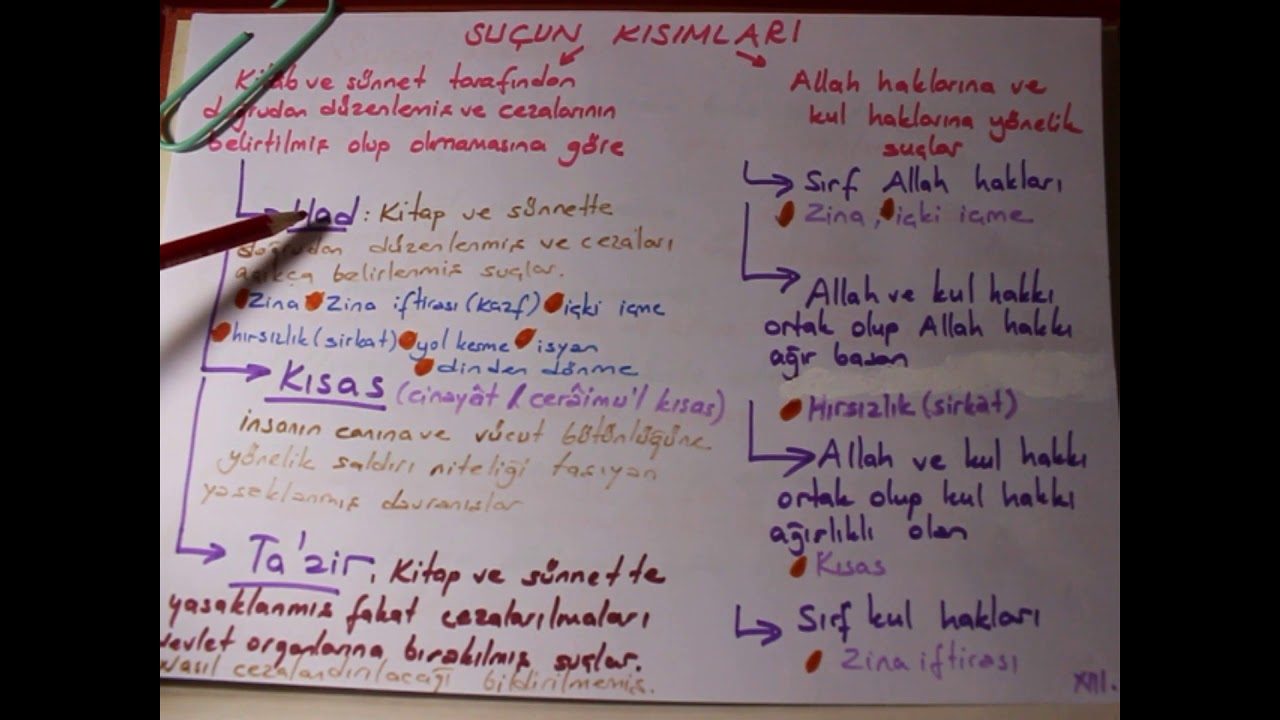 SUÇUN KISIMLARI
Kitab ve sünnet tarafından
doğrudan düzenlemiş ve cezalarının
belirtilmiş olup olmamasına göre
Had: Kitap ve sünnette
doğrudan düzenlenmiş ve cezaları
açıkça belirlenmiş suçlar.
Zina Zina iftirası (Kazf) içki içme
hırsızlık (sirkat) yol kesme isyan
dinden dönme
Kısas (cinayât / cerâimu'l kısas)
insanın canına ve vücut bütünlüğüne
yönelik saldırı niteliği taşıyan
yasaklanmış davranışlar
Ta'zir, Kitap ve sünnette
yasaklanmış fakat cezalarılmaları
devlet organlarına bırakılmış suçlar.
Nasıl cezalandırılacağı bildirilmemiş.
Allah haklarına ve
kul haklarına yönelik
suçlar
Sırf Allah hakları
Zina, içki içme
Allah ve kul hakkı
ortak olup Allah hakkı
ağır basan
Hırsızlık (sirkat)
Allah ve kul hakkı
ortak olup kul hakkı
ağırlıklı olan
Kısas
Sırf kul hakları
Zina iftirası
XIII.